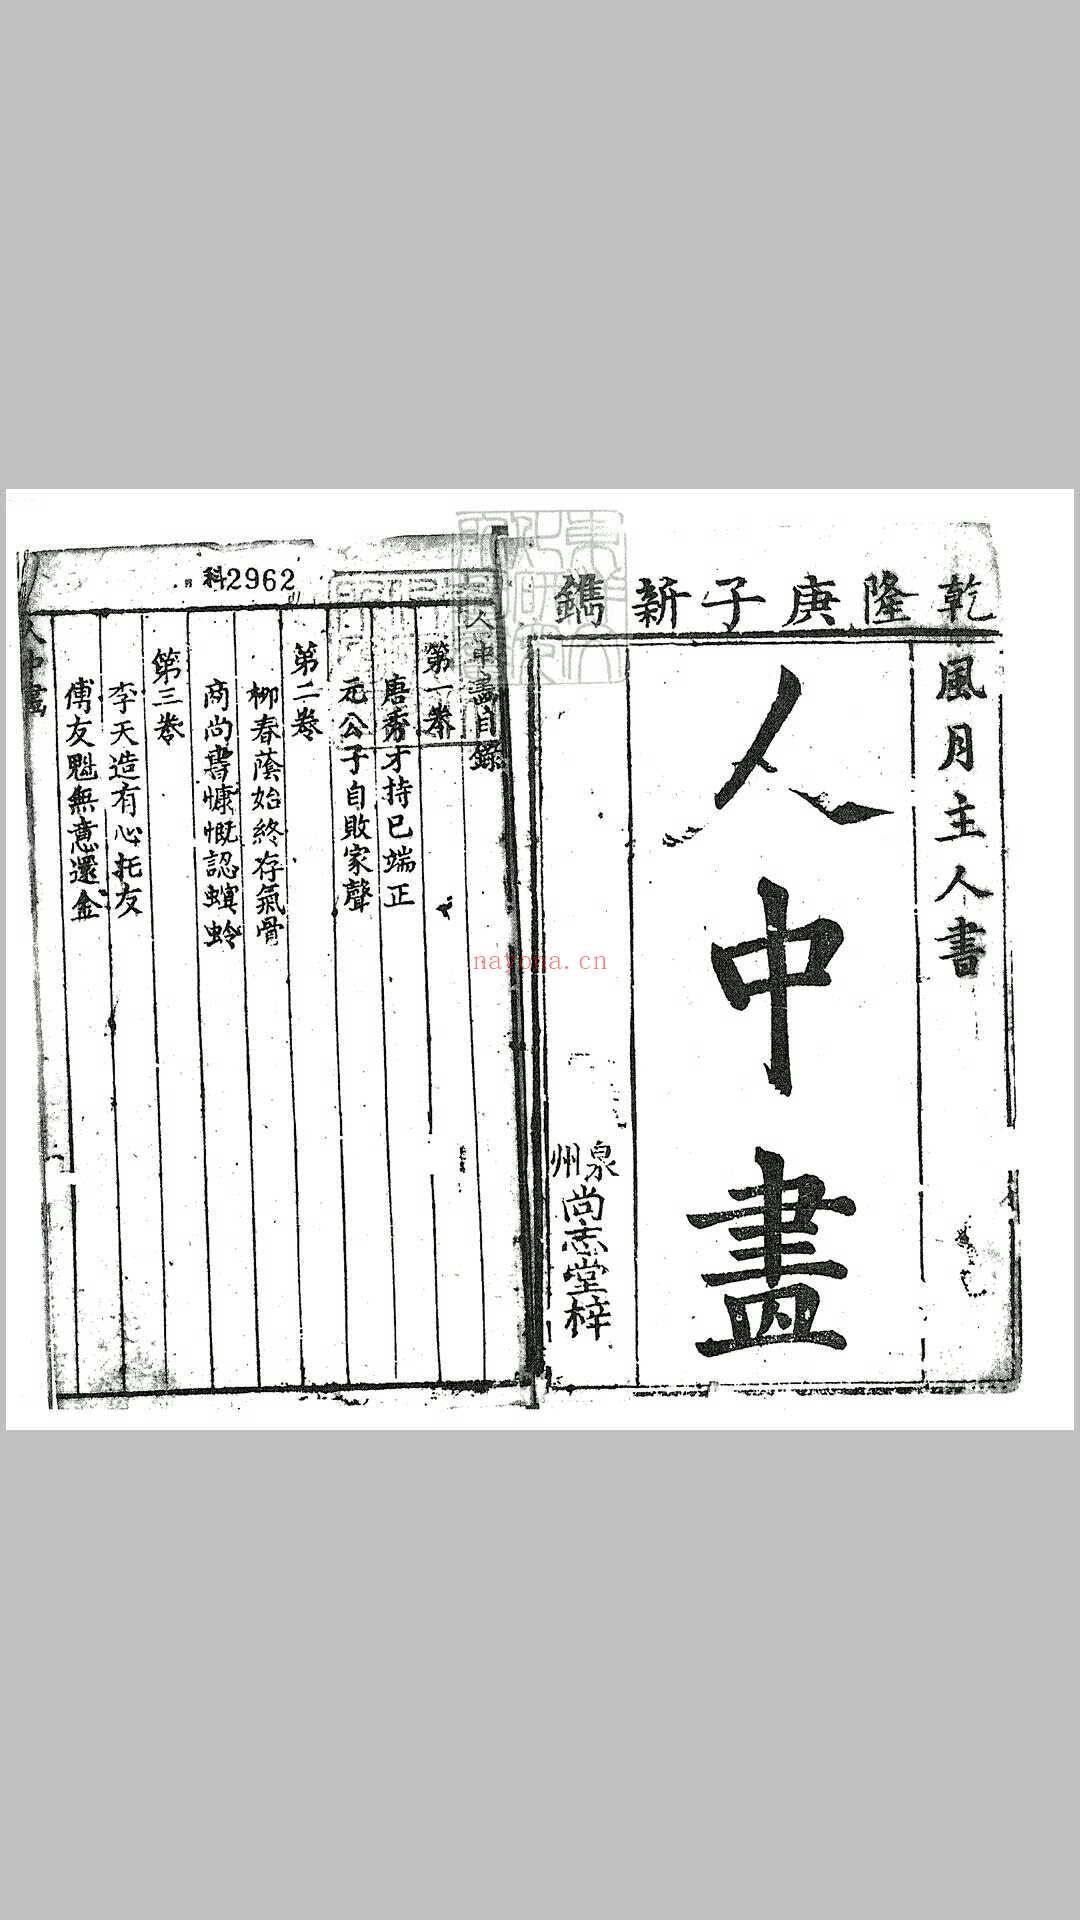 乾隆庚子新鐫
風月主人書
人中畫
泉州
尚志堂梓
科2962
人中畫目錄
第一卷
唐秀才持己端正
元公子自敗家聲
第二卷
柳春蔭始終存氣骨
商尚書慷慨認螟蛉
第三卷
李天造有心托友
傅友魁無意還金
人中畫
nayona.cn